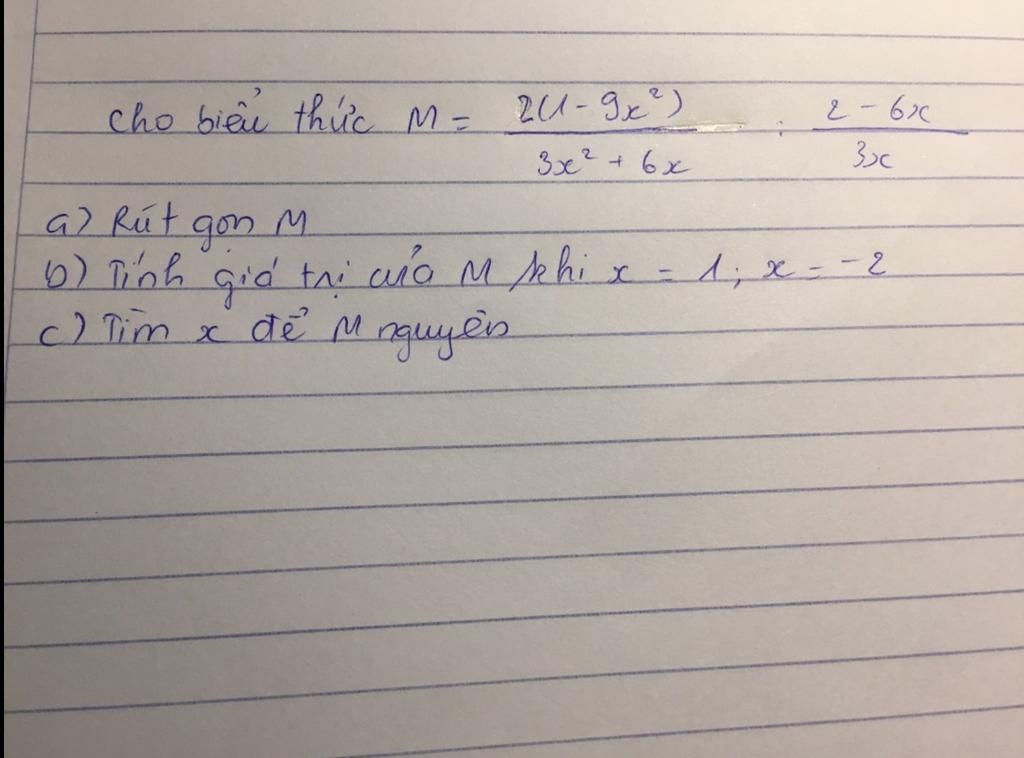 Cho biểu thức M = 2(1 - 9x²) / 3x² + 6x : 2 - 6x / 3x
a) Rút gọn M
b) Tính giá trị của M khi x = 1; x = -2
c) Tìm x để M nguyên